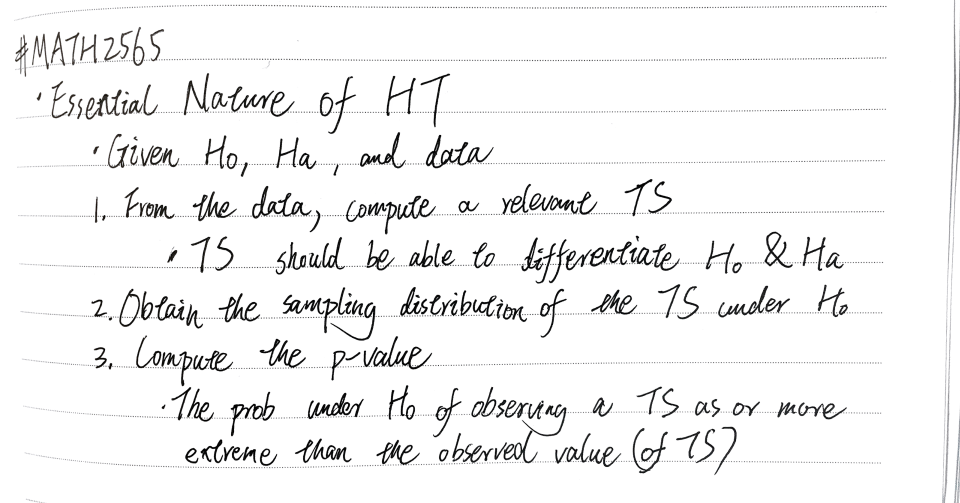 #MATH2565
· Essential Nature of HT
· Given Ho, Ha, and data
1. From the data, compute a relevant TS
· TS should be able to differentiate Ho & Ha
2. Obtain the sampling distribution of the TS under Ho
3. Compute the p-value
· The prob under Ho of observing a TS as or more
extreme than the observed value (of TS)